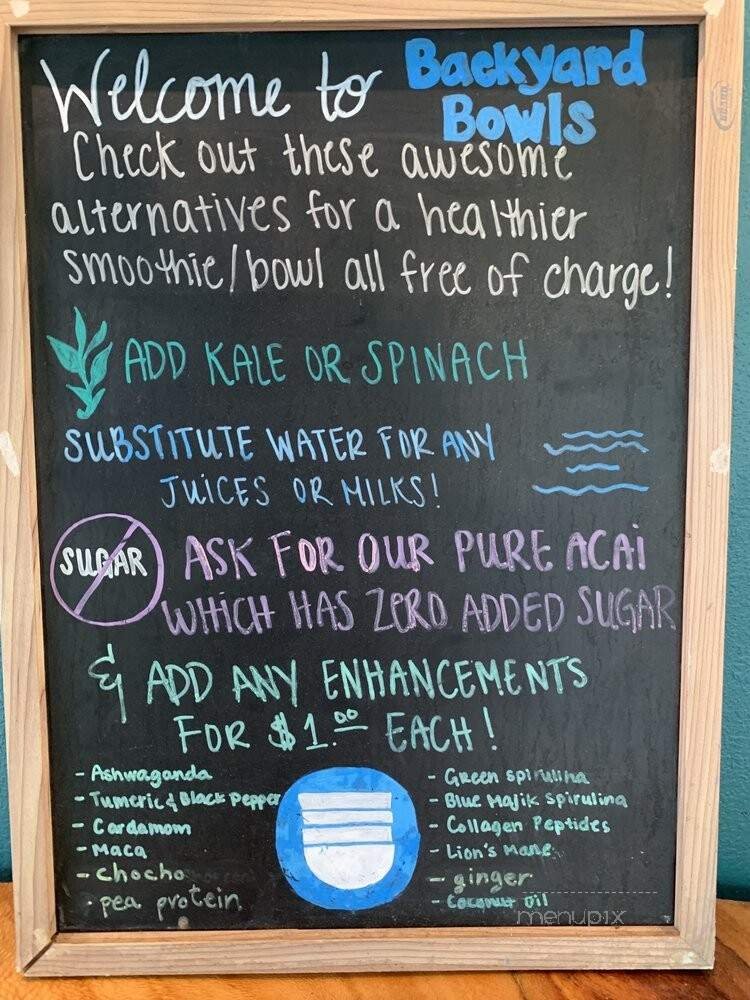 Welcome to Backyard
Bowls
Check out these awesome
alternatives for a healthier
smoothie/bowl all free of charge!
ADD KALE OR SPINACH
SUBSTITUTE WATER FOR ANY
JUICES OR MILKS!
SUGAR
ASK FOR OUR PURE ACAI
WHICH HAS ZERO ADDED SUGAR
& ADD ANY ENHANCEMENTS
FOR $1.00 EACH!
- Ashwaganda
- Tumeric & Black Pepper
- Cardamom
- Maca
- chocho
- pea protein
- Green spirulina
- Blue Majik Spirulina
- Collagen Peptides
- Lion's Mane
- ginger
- Coconut Oil
menupix